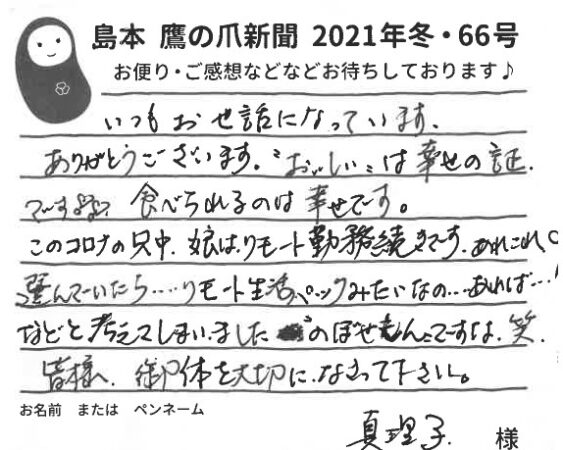 島本 鷹の爪新聞 2021年冬・66号
お便り・ご感想などなどお待ちしております♪
いつもお世話になっています。
ありがとうございます。〝おいしい〟は幸せの証。
ですよね 食べられるのは幸せです。
このコロナの只中、娘はリモート勤務続きです。あれこれ
選んでいたら……リモート生活パックみたいなの…あれば…!
などと考えてしまいました のぼせもんですね。笑
皆様へ、御体を大切になさって下さい。
お名前 または ペンネーム
真理子. 様